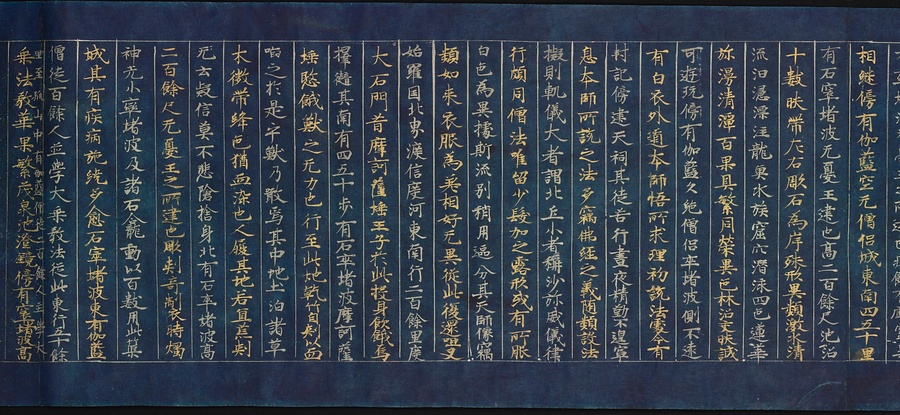 相継傍有伽藍空无僧侶城東南四五十里
有石窣堵波无憂王建也高二百餘尺池沼
十數映帶左右彫石為岸殊形異類激水清
流汩淴漂注龍魚水族窟穴潛泳四色蓮華
弥漫清潭百果具繁同榮異色林沼交映誠
可遊玩傍有伽藍久絕僧侶窣堵波側不遠
有白衣外道本師悟所求理初說法處今有
封記傍建天祠其徒苦行晝夜精勤不遑寧
息本師所說之法多竊佛經之義隨類設法
擬則軌儀大者謂比丘小者稱沙弥威儀律
行頗同僧法唯留少髮加之露形或有所服
白色為異據斯流別稍用區分其天師像竊
類如來衣服為差相好无異從此復還呾叉
始羅國北界渡信度河東南行二百餘里度
大石門昔摩訶薩埵王子於此投身飲餓烏
擇𪕱其南有四五十步有石窣堵波摩訶薩
埵愍餓獸之无力也行至此地乾竹自刺以血
啗之於是乎獸乃噉焉其中地土洎諸草
木微帶絳色猶血染也人履其地若負芒刺
无云疑信莫不悲愴捨身北有石窣堵波高
二百餘尺无憂王之所建也彫刻奇制衣時燭
神光小窣堵波及諸石龕動以百數周此塋
城其有疾病旋繞多愈石窣堵波東有伽藍
僧徒百餘人並學大乘教法從此東行五十餘
里至孤山中有伽藍僧徒二百餘人並學大
乘法教華果繁茂泉池澄鏡傍有窣堵波高